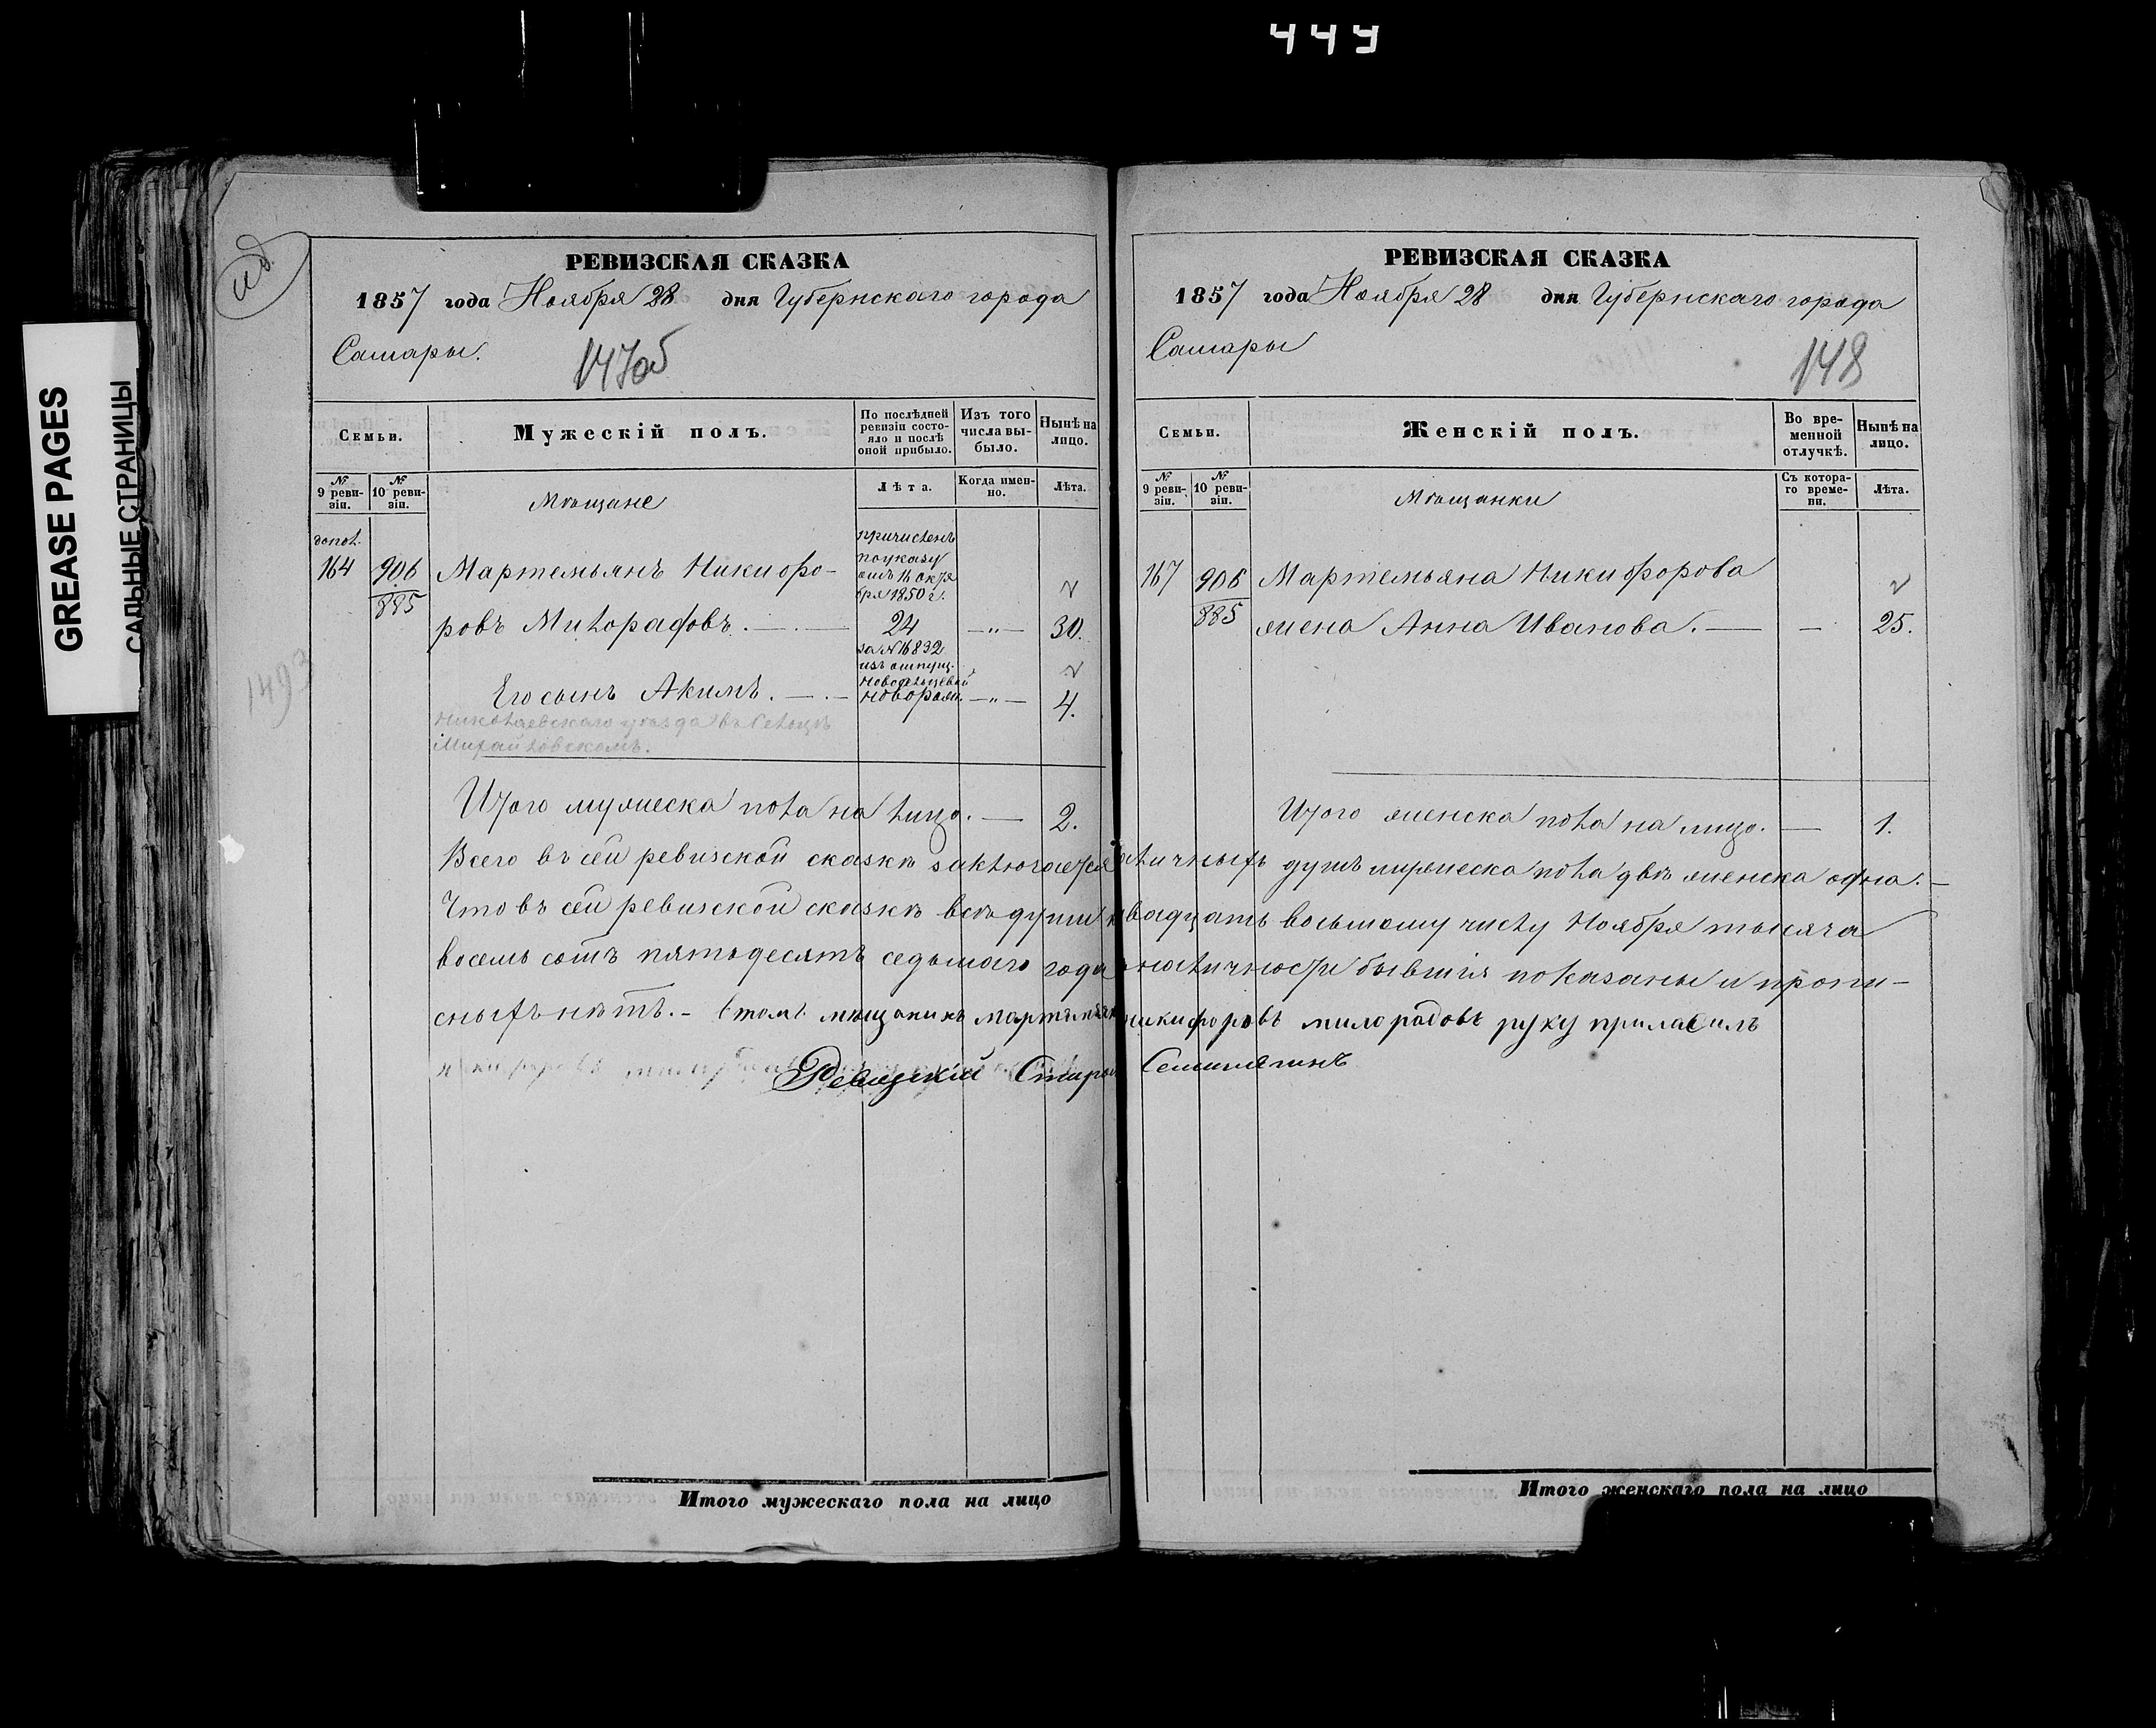 449
GREASE PAGES
САЛЬНЫЕ СТРАНИЦЫ
РЕВИЗСКАЯ СКАЗКА
1857 года Ноября 28 дня Губернскаго города
Самары.
147об
Семьи.
Мужескій полъ.
По послѣдней ревизіи состояло и послѣ оной прибыло.
Изъ того числа выбыло.
Нынѣ на лицо.
№ 9 ревизіи.
№ 10 ревизіи.
Мѣщане
Лѣта.
Когда именно.
Лѣта.
допол.
причисленъ
по указу
отъ 16 октя
бря 1850 г.
164 906 Мартемьянъ Никифо-
885
ровъ Милорадовъ. 24 —"— 30.
за №16832
изъ отпущ.
Его сынъ Акимъ. новорожд. —"— 4.
Николаевскаго уѣзда въ Сельцѣ
Михайловскомъ.
Итого мужеска пола на лицо. — 2.
Всего въ сей ревизской сказкѣ заключается
Что въ сей ревизской сказкѣ всѣ души к
восемь сотъ пятьдесятъ седьмаго года
сныхъ нѣтъ. –
мѣщанинъ мартемьян
Ревизскій
Итого мужескаго пола на лицо
РЕВИЗСКАЯ СКАЗКА
1857 года Ноября 28 дня Губернскаго города
Самары
148
Семьи.
Женскій полъ.
Во временной отлучкѣ.
Нынѣ на лицо.
№ 9 ревизіи.
№ 10 ревизіи.
Мѣщанки
Съ котораго времени.
Лѣта.
167 906 Мартемьяна Никифорова
885 жена Анна Иванова. — — 25.
Итого женска пола на лицо. — 1.
аличныхъ душъ мужеска пола двѣ женска одна. –
вадцать восьмому числу Ноября тысяча
наличности бывшія показаны и пропи-
никифоровъ милорадовъ руку приложилъ
Итого женскаго пола на лицо